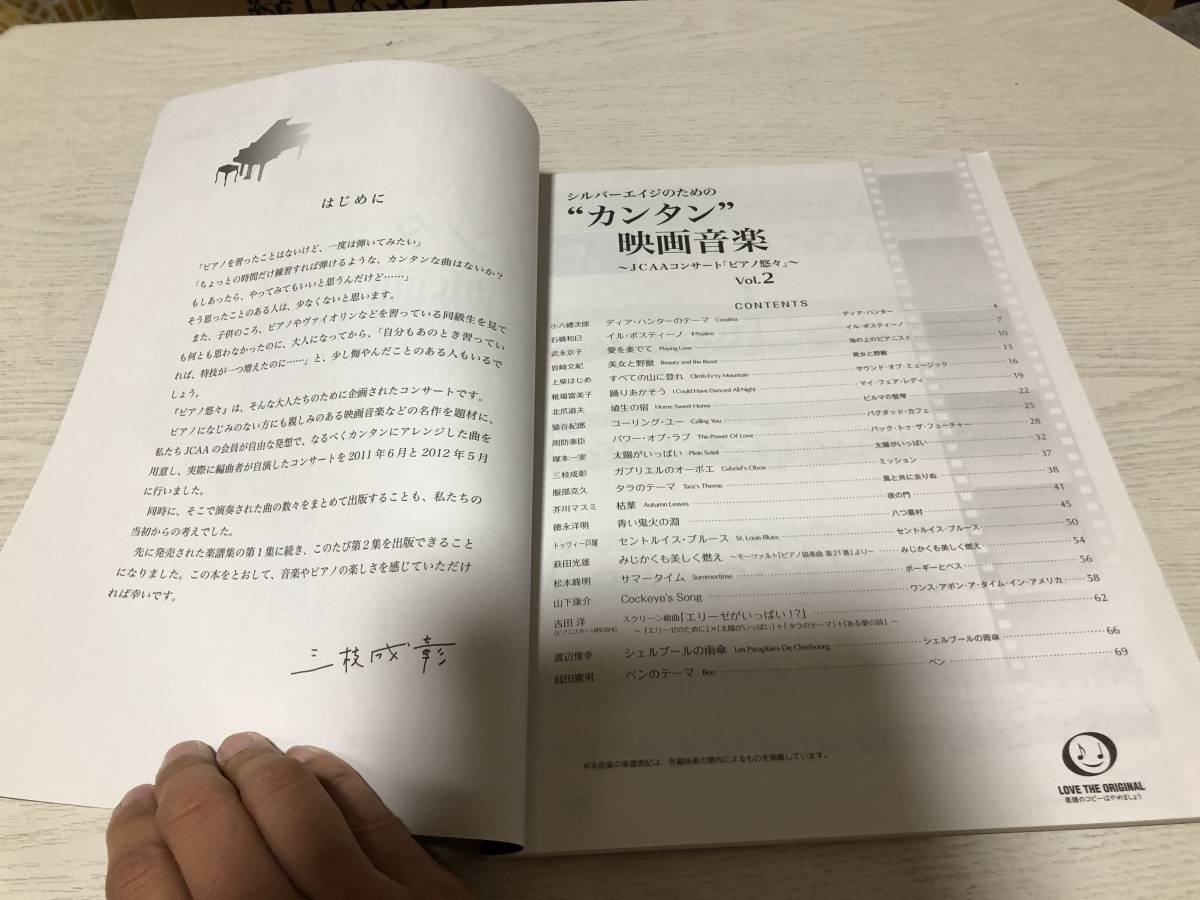 はじめに
「ピアノを習ったことはないけど、一度は弾いてみたい」
「ちょっとの時間だけ練習すれば弾けるような、カンタンな曲はないか?
もしあったら、やってみてもいいと思うんだけど……」
そう思ったことのある人は、少なくないと思います。
また、子供のころ、ピアノやヴァイオリンなどを習っている同級生を見て
も何とも思わなかったのに、大人になってから、「自分もあのとき習ってい
れば、特技が一つ増えたのに……」と、少し悔やんだことのある人もいるで
しょう。
『ピアノ悠々』は、そんな大人たちのために企画されたコンサートです。
ピアノになじみのない方にも親しみのある映画音楽などの名作を題材に、
私たちJCAAの会員が自由な発想で、なるべくカンタンにアレンジした曲を
用意し、実際に編曲者が自演したコンサートを2011年6月と2012年5月
に行いました。
同時に、そこで演奏された曲の数々をまとめて出版することも、私たちの
当初からの考えでした。
先に発売された楽譜集の第1集に続き、このたび第2集を出版できること
になりました。この本をとおして、音楽やピアノの楽しさを感じていただけ
れば幸いです。
三枝成彰
シルバーエイジのための
“カンタン”
映画音楽
〜JCAAコンサート「ピアノ悠々」〜
Vol.2
CONTENTS
小六禮次郎 ディア・ハンターのテーマ Cavatina ディア・ハンター 4
石橋和巳 イル・ポスティーノ Il Postino イル・ポスティーノ 7
武永京子 愛を奏でて Playing Love 海の上のピアニスト 10
岩崎文紀 美女と野獣 Beauty and the Beast 美女と野獣 13
上柴はじめ すべての山に登れ Climb Ev'ry Mountain サウンド・オブ・ミュージック 16
椎場富美子 踊りあかそう I Could Have Danced All Night マイ・フェア・レディ 19
北爪道夫 埴生の宿 Home Sweet Home ビルマの竪琴 22
猿谷紀郎 コーリング・ユー Calling You バグダッド・カフェ 25
周防泰臣 パワー・オブ・ラブ The Power Of Love バック・トゥ・ザ・フューチャー 28
塚本一実 太陽がいっぱい Plein Soleil 太陽がいっぱい 32
三枝成彰 ガブリエルのオーボエ Gabriel's Oboe ミッション 37
服部克久 タラのテーマ Tara's Theme 風と共に去りぬ 38
芥川マスミ 枯葉 Autumn Leaves 夜の門 41
徳永洋明 青い鬼火の淵 八つ墓村 45
トッヴィー戸塚 セントルイス・ブルース St. Louis Blues セントルイス・ブルース 50
萩田光雄 みじかくも美しく燃え 〜モーツァルト「ピアノ協奏曲 第21番」より〜 みじかくも美しく燃え 54
松本峰明 サマータイム Summertime ポーギーとベス 56
山下康介 Cockeye's Song ワンス・アポン・ア・タイム・イン・アメリカ 58
吉田 洋 スクリーン組曲「エリーゼがいっぱい!?」 62
(ピアニスター HIROSHI) 〜「エリーゼのために」×「太陽がいっぱい」+「タラのテーマ」+「ある愛の詩」〜
渡辺俊幸 シェルブールの雨傘 Les Parapluies De Cherbourg シェルブールの雨傘 66
前田憲男 ベンのテーマ Ben ベン 69
※本曲集の楽譜表記は、各編曲者の意向によるものを掲載しています。
LOVE THE ORIGINAL
楽譜のコピーはやめましょう